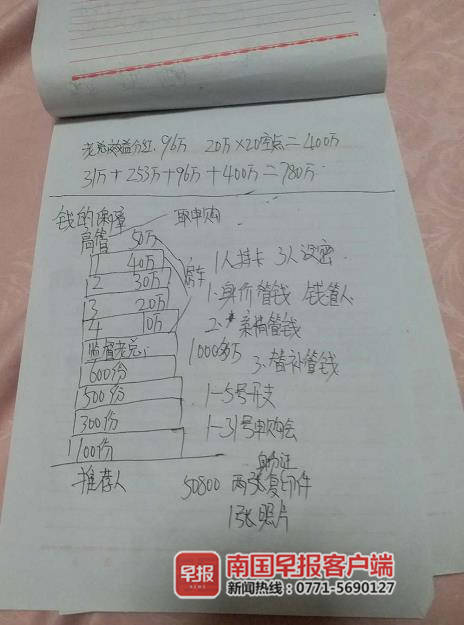 老总效益分红96万 20万×20空点=400万
31万+253万+96万+400万=780万
钱的保障 取申购
高管 50万
1 40万 房车 1人挂卡 3人设密
2 30万 1.身价管钱 钱管人
3 20万
4 10万 2.亲情管钱
监督老总 1000多万
600份 3.替补管钱
500份 1-5号开支
300份 1-31号申购会
1100份 身份证
推荐人 50800 两张复印件
1张照片
早报 南国早报客户端
新闻热线:0771-5690127